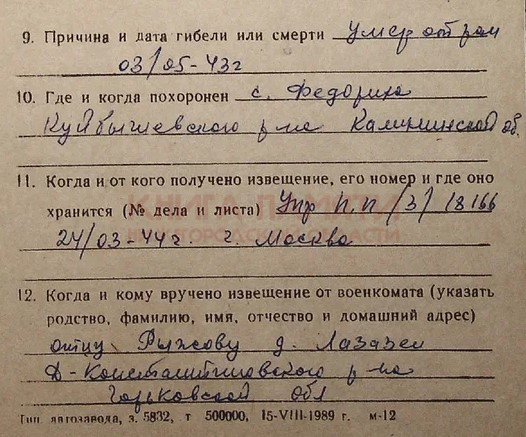 9. Причина и дата гибели или смерти умер от ран
03/05-43г
10. Где и когда похоронен с. Федориха
Куйбышевского р-на Калининской об.
11. Когда и от кого получено извещение, его номер и где оно
хранится (№ дела и листа) Упр п.п /3/ 18166
24/03-44г. г. Москва
КНИГА ПАМЯТИ
НИЖЕГОРОДСКОЙ ОБЛАСТИ
12. Когда и кому вручено извещение от военкомата (указать
родство, фамилию, имя, отчество и домашний адрес)
отцу Рыжову д.
Д-Константиновского р-на
Горьковской обл
Тип. автозавода, з. 5832, т 500000, 15-VIII-1989 г. м-12